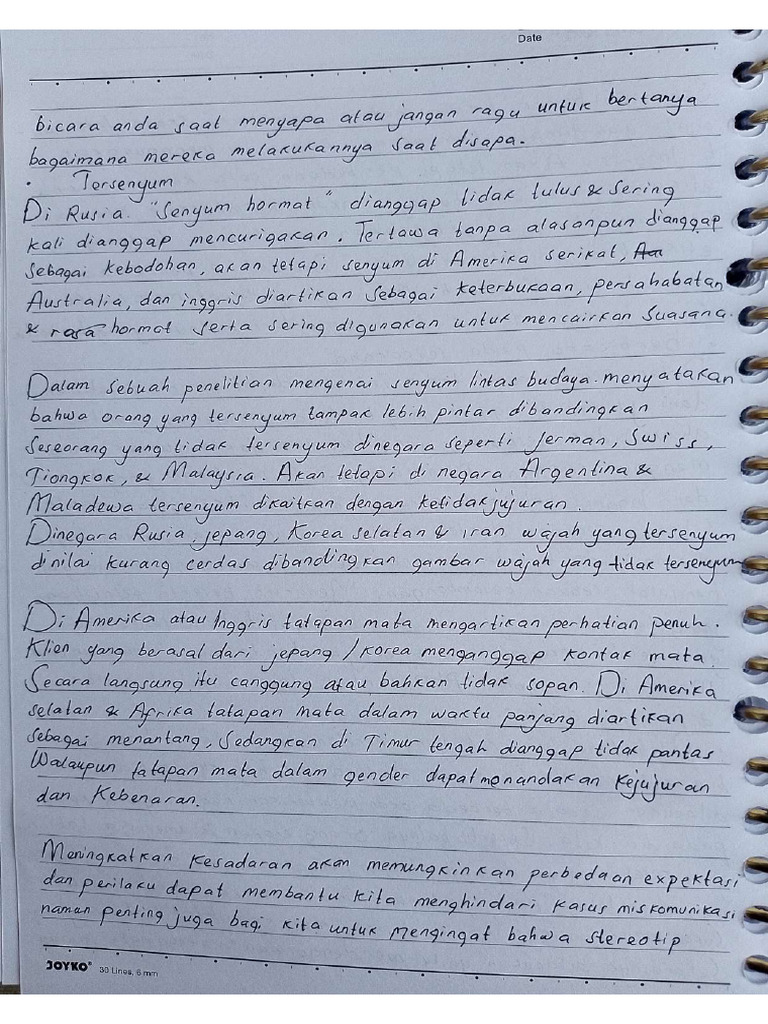 Date
bicara anda saat menyapa atau jangan ragu untuk bertanya
bagaimana mereka melakukannya saat disapa.
• Tersenyum
Di Rusia. "Senyum hormat" dianggap tidak tulus & sering
kali dianggap mencurigakan. Tertawa tanpa alasanpun dianggap
sebagai kebodohan, akan tetapi senyum di Amerika serikat,
Australia, dan inggris diartikan sebagai keterbukaan, persahabatan
& rasa hormat serta sering digunakan untuk mencairkan suasana.
Dalam sebuah penelitian mengenai senyum lintas budaya. menyatakan
bahwa orang yang tersenyum tampak lebih pintar dibandingkan
seseorang yang tidak tersenyum dinegara seperti Jerman, Swiss,
Tiongkok, & Malaysia. Akan tetapi di negara Argentina &
Maladewa tersenyum dikaitkan dengan ketidakjujuran.
Dinegara Rusia, jepang, Korea selatan & iran wajah yang tersenyum
dinilai kurang cerdas dibandingkan gambar wajah yang tidak tersenyum
Di Amerika atau Inggris tatapan mata mengartikan perhatian penuh.
Klien yang berasal dari jepang / Korea menganggap kontak mata
Secara langsung itu canggung atau bahkan tidak sopan. Di Amerika
selatan & Afrika tatapan mata dalam waktu panjang diartikan
sebagai menantang, Sedangkan di Timur tengah dianggap tidak pantas
Walaupun tatapan mata dalam gender dapat menandakan kejujuran
dan Kebenaran.
Meningkatkan Kesadaran akan memungkinkan perbedaan expektasi
dan perilaku dapat membantu kita menghindari kasus miskomunikasi
namun penting juga bagi kita untuk mengingat bahwa stereotip
JOYKO® 30 Lines, 6 mm